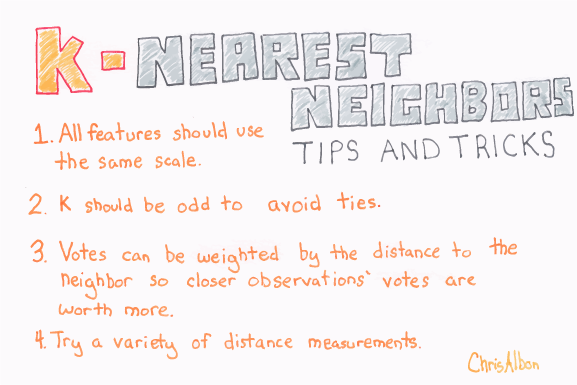 K-NEAREST
NEIGHBORS
TIPS AND TRICKS
1. All features should use
the same scale.
2. K should be odd to avoid ties.
3. Votes can be weighted by the distance to the
neighbor so closer observations' votes are
worth more.
4. Try a variety of distance measurements.
Chris Albon